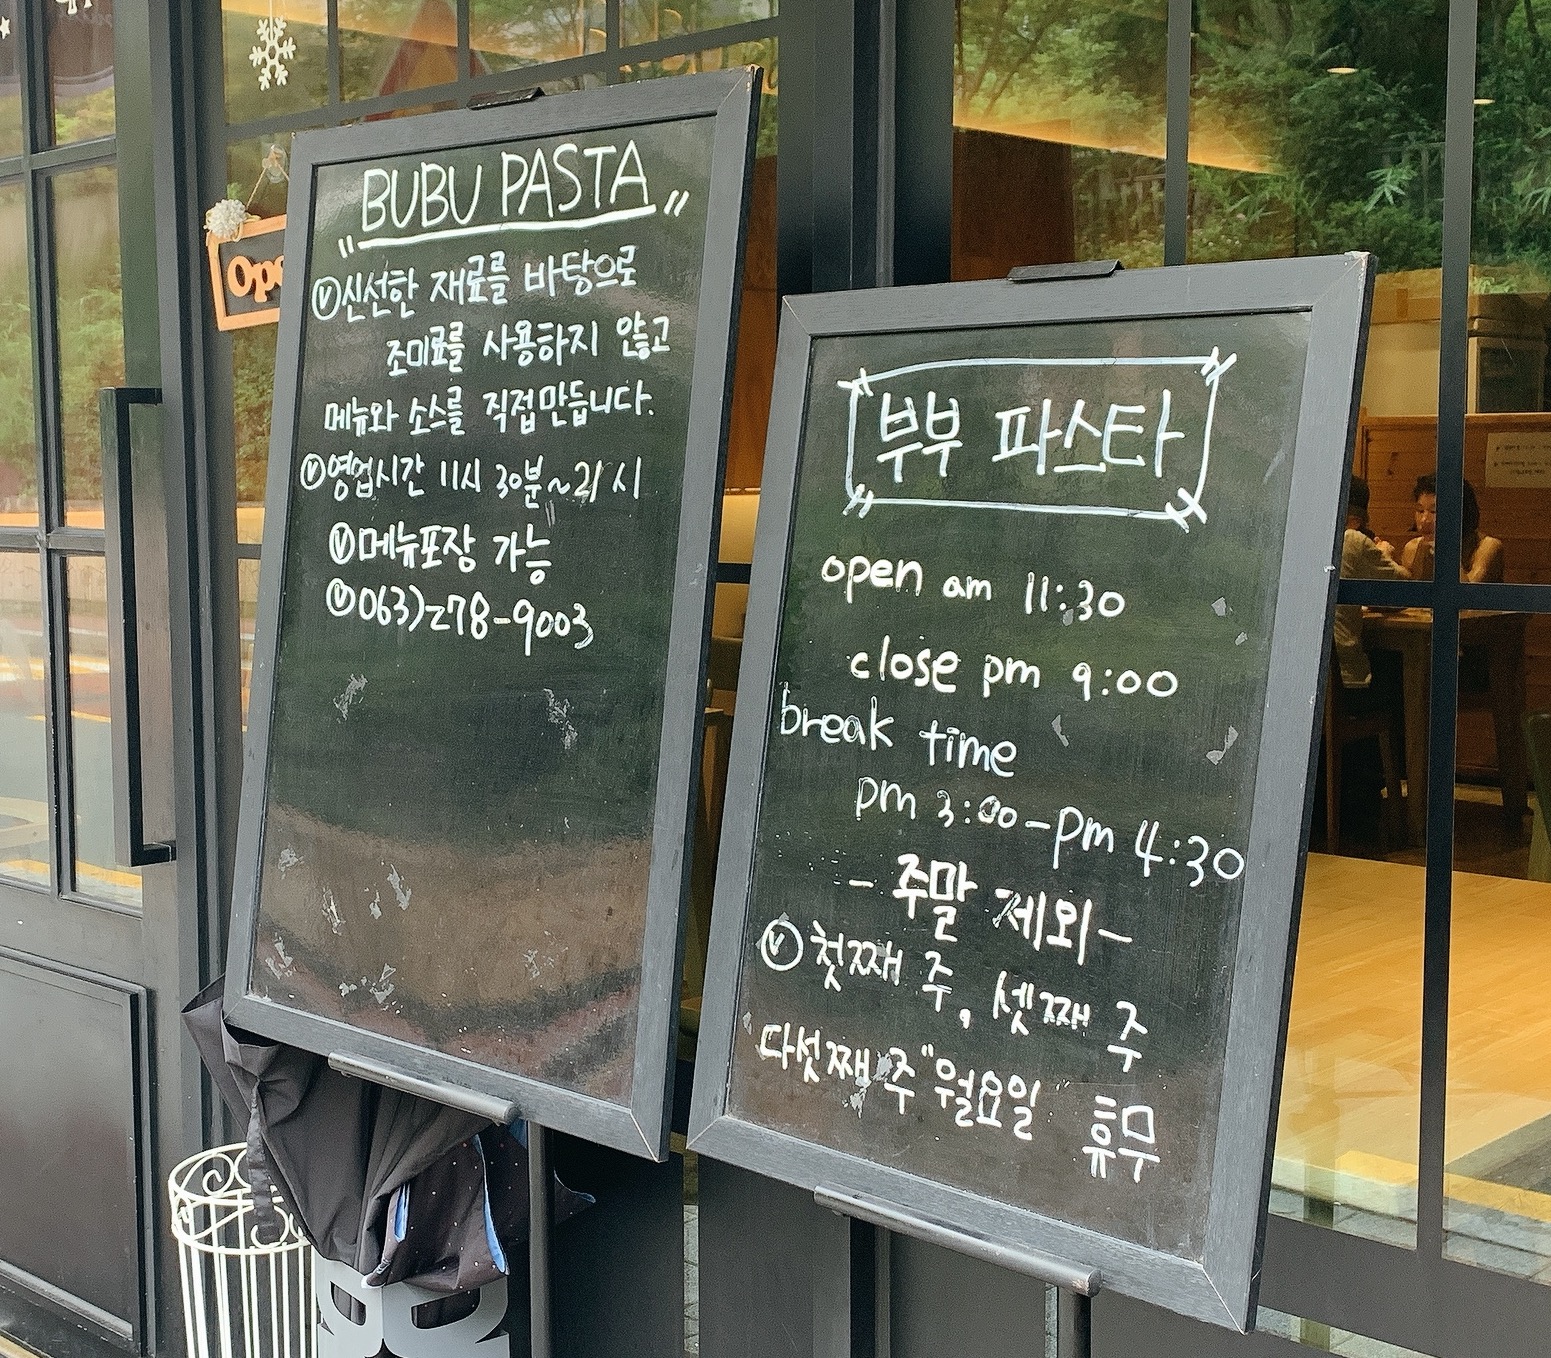 BUBU PASTA
신선한 재료를 바탕으로
조미료를 사용하지 않고
메뉴와 소스를 직접만듭니다.
영업시간 11시 30분~21시
메뉴포장 가능
063)278-9003
부부 파스타
open am 11:30
close pm 9:00
break time
pm 3:00-pm 4:30
- 주말 제외-
첫째 주, 셋째 주
다섯째 주 "월요일" 휴무